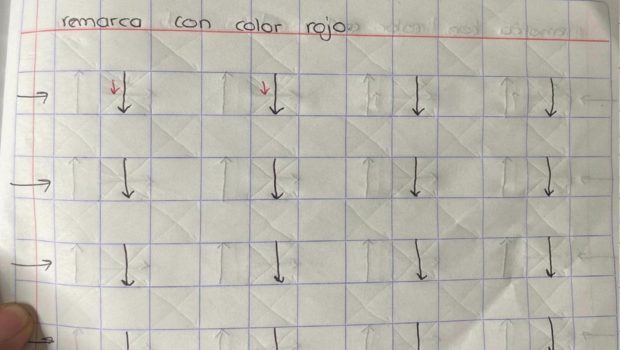 remarca con color rojo